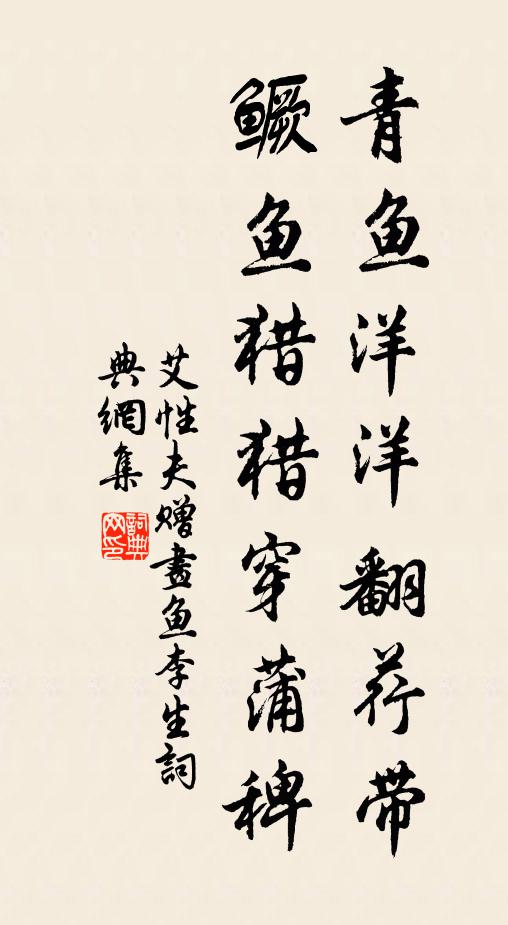 青鱼洋洋翻荇带
鳜鱼猎猎穿蒲稗
艾性夫赠畫鱼李生詞
典網集
詞典网印